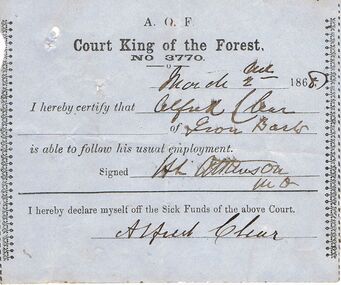 A. O. F
Court King of the Forest,
NO 3770.
2 186
I hereby certify that Alfred Clear
of Iron Bark
is able to follow his usual employment.
Signed H L Atkinson
M D
I hereby declare myself off the Sick Funds of the above Court.
Alfred Clear